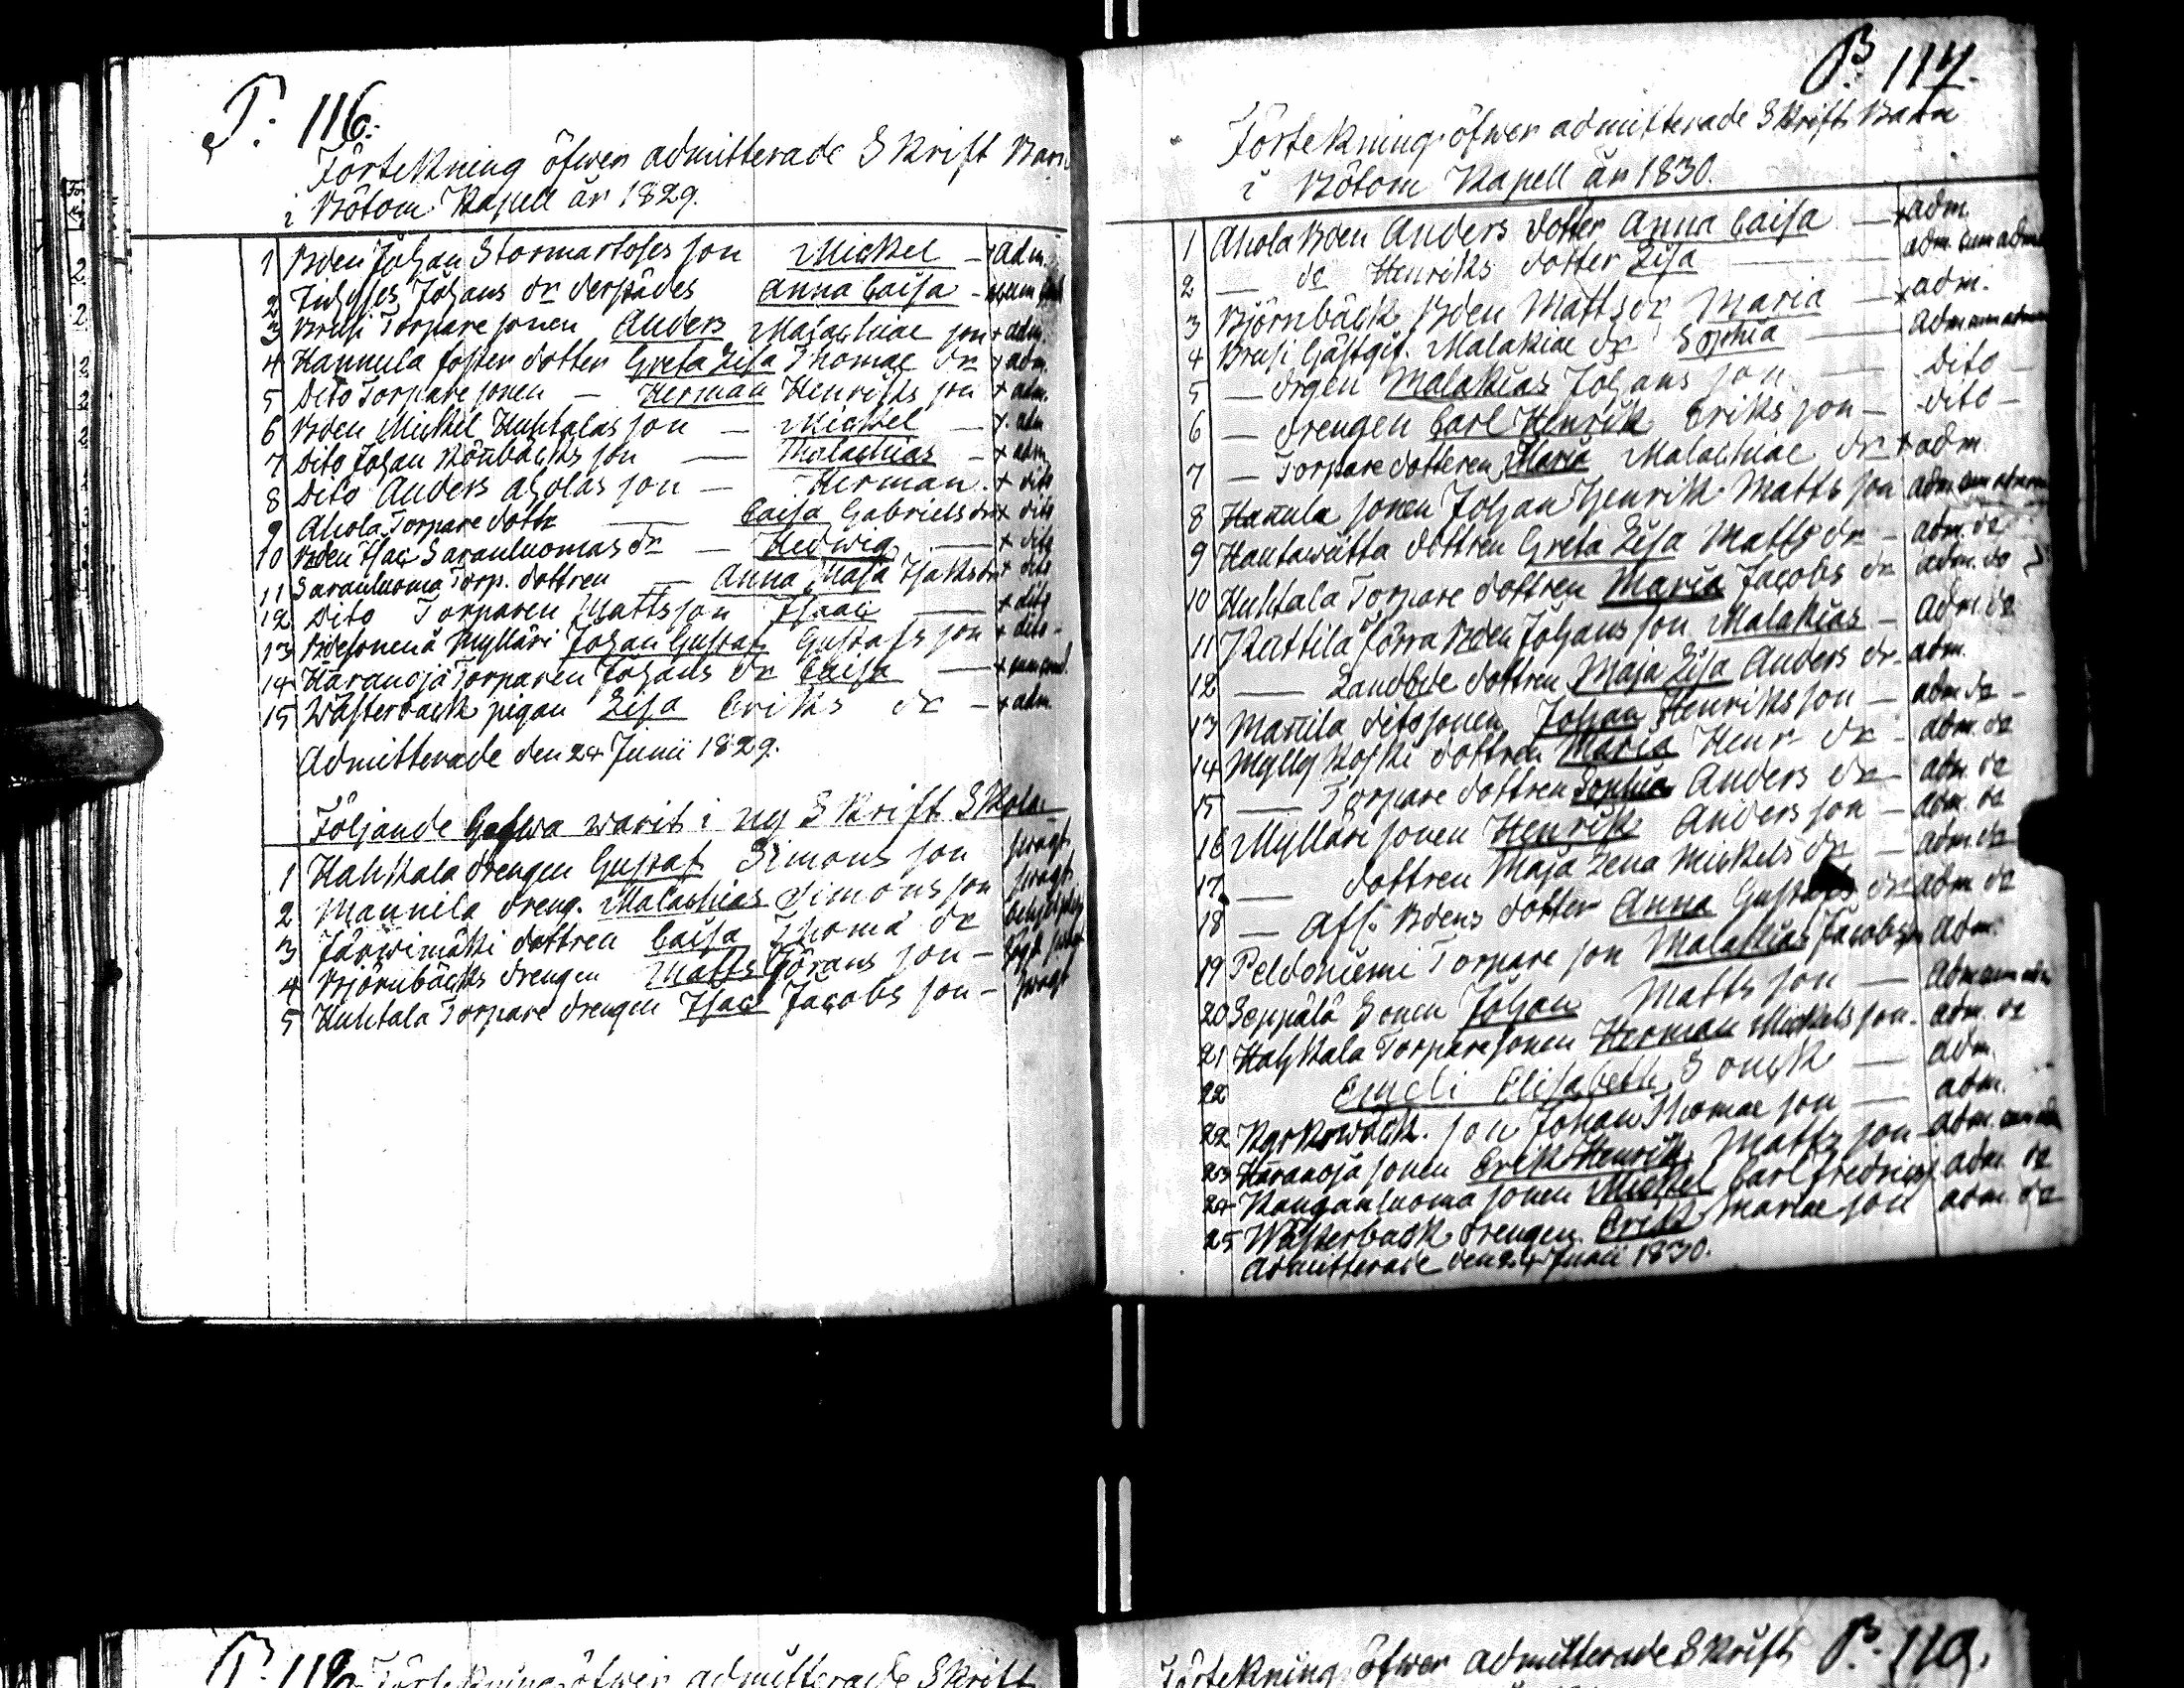 P. 116.
Förtekning öfwer admitterade Skrift Barn
i Bötom Kapell år 1829.
1 Bden Johan Stormartofes son Mickel — + adm.
2 Johans dr Anna Caisa
3 Brusi Torpare sonen Anders Malachiae son + adm.
4 Hannula foster dotter Greta Lisa Thomae dr + adm.
5 Dito Torpare sonen — Herman Henriks son + adm.
6 Bden Mickel Huhtalas son — Mickel — + adm
7 Dito Johan Rönbacks son — Malachias — + adm
8 Dito Anders Aholas son — Herman + dito
9 Ahola Torpare dottr — Caisa Gabriels dr + dito
10 Bden Isac Saranluomas dr — Hedwig — + dito
11 Saranluoma Torp. dottren — Anna Maja Isaks dr + dito
12 Dito Torparen Matts son Isaac — + dito
13 Bdesonen å Mylläri Johan Gustaf Gustafs son + dito
14 Haranoja Torparen Johans dr Caisa — +
15 Wästerback pigan Lisa Eriks dr — + adm.
Admitterade den 24 Junii 1829.
Följande hafwa warit i ny Skrift Skola
1 Hahkala drengen Gustaf Simons son swagt
2 Mannila dreng. Malachias Simons son swagt
3 Järwimäki dottren Caisa Thoma dr
4 Björnbäcks drengen Matts Görans son —
5 Huhtala Torpare drengen Isac Jacobs son — swagt
P. 117.
Förtekning öfwer admitterade Skrift Barn
i Bötom Kapell år 1830.
1 Ahola Bden Anders dotter Anna Caisa — + adm.
2 — do Henriks dotter Lisa — adm. cum adm
3 Björnbäck Bden Matts dr Maria — + adm.
4 Brusi Gästgif. Malakiae dr Sophia — adm cum adm
5 — drgen Malakias Johans son — dito —
6 — drengen Carl Henrik Eriks son — dito —
7 — Torpare dotteren Maria Malachiae dr + adm.
8 Hanula sonen Johan Henrik Matts son adm cum adm
9 Hautawatta dottren Greta Lisa Matts dr — adm. do
10 Huhtala Torpare dottren Maria Jacobs dr adm. do
11 Kattila förra Bden Johans son Malakias — adm. do
12 — Landbde dottren Maja Lisa Anders dr — adm.
13 Manila dito sonen Johan Henriks son — adm do —
14 Mylly koski dottren Maria Henr dr — adm. do
15 — Torpare dottren Sophia Anders dr adm. do
16 Mylläri sonen Henrik Anders son — adm. do
17 — dottren Maja Lena Mickels dr — adm. do
18 — Afl. Bdens dotter Anna Gustafs dr adm do
19 Peldoniemi Torpare son Malakias Jacobs adm.
20 Seppälä Sonen Johan Matts son — adm cum adm
21 Hahkala Torpare sonen Herman Mickels son. adm. do
22 Emeli Elisabeth Sonck — adm.
22 son Johan Thomae son — adm.
23 Haranoja sonen Erik Henrik Matts son — adm. cum adm
24 Kanganluoma sonen Mickel Carl fredrics adm. do
25 Wästerback drengen Erik Mariae son adm. do
Admitterade den 24 Junii 1830.
P. 118. Förtekning öfwer admitterade Skrift
Förtekning öfwer admitterade Skrift P. 119.